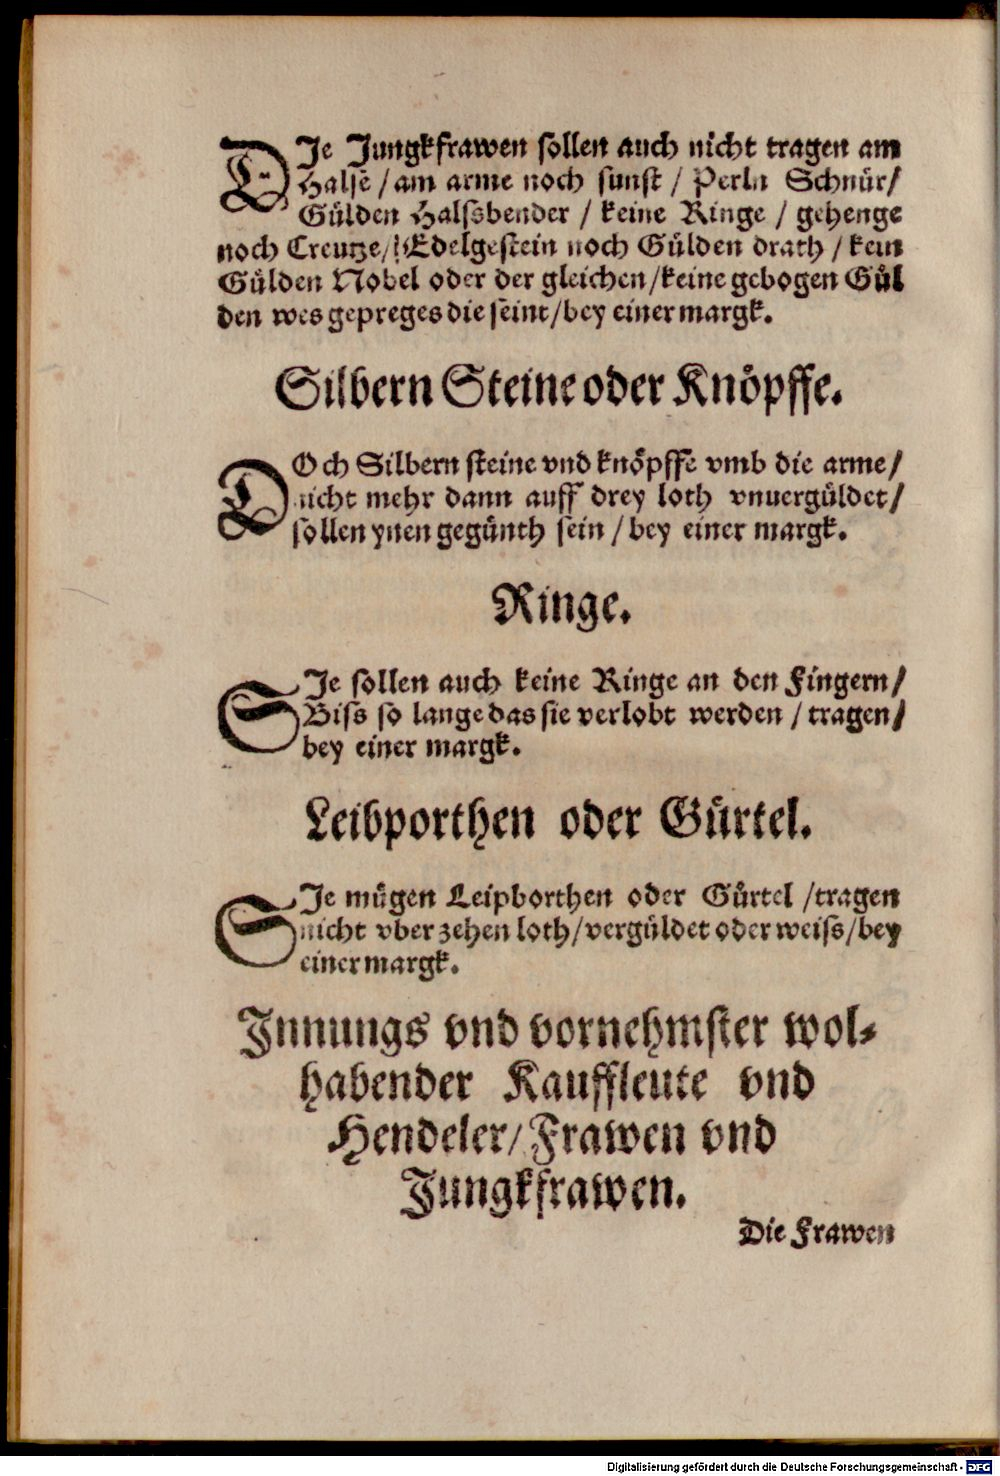 DIe Jungkfrawen sollen auch nicht tragen am
Halse / am arme noch sunst / Perln Schnür /
Gülden Halssbender / keine Ringe / gehenge
noch Creutze / Edelgestein noch Gülden drath / kein
Gülden Nobel oder der gleichen / keine gebogen Gül
den wes gepreges die seint / bey einer margk.
Silbern Steine oder Knöpffe.
DOch Silbern steine vnd knöpffe vmb die arme /
nicht mehr dann auff drey loth vnuergüldet /
sollen ynen gegünth sein / bey einer margk.
Ringe.
SIe sollen auch keine Ringe an den Fingern /
Biss so lange das sie verlobt werden / tragen /
bey einer margk.
Leibporthen oder Gürtel.
SIe mügen Leipborthen oder Gürtel / tragen
nicht vber zehen loth / vergüldet oder weiss / bey
einer margk.
Innungs vnd vornehmster wol-
habender Kauffleute vnd
Hendeler / Frawen vnd
Jungkfrawen.
Die Frawen
Digitalisierung gefördert durch die Deutsche Forschungsgemeinschaft - DFG